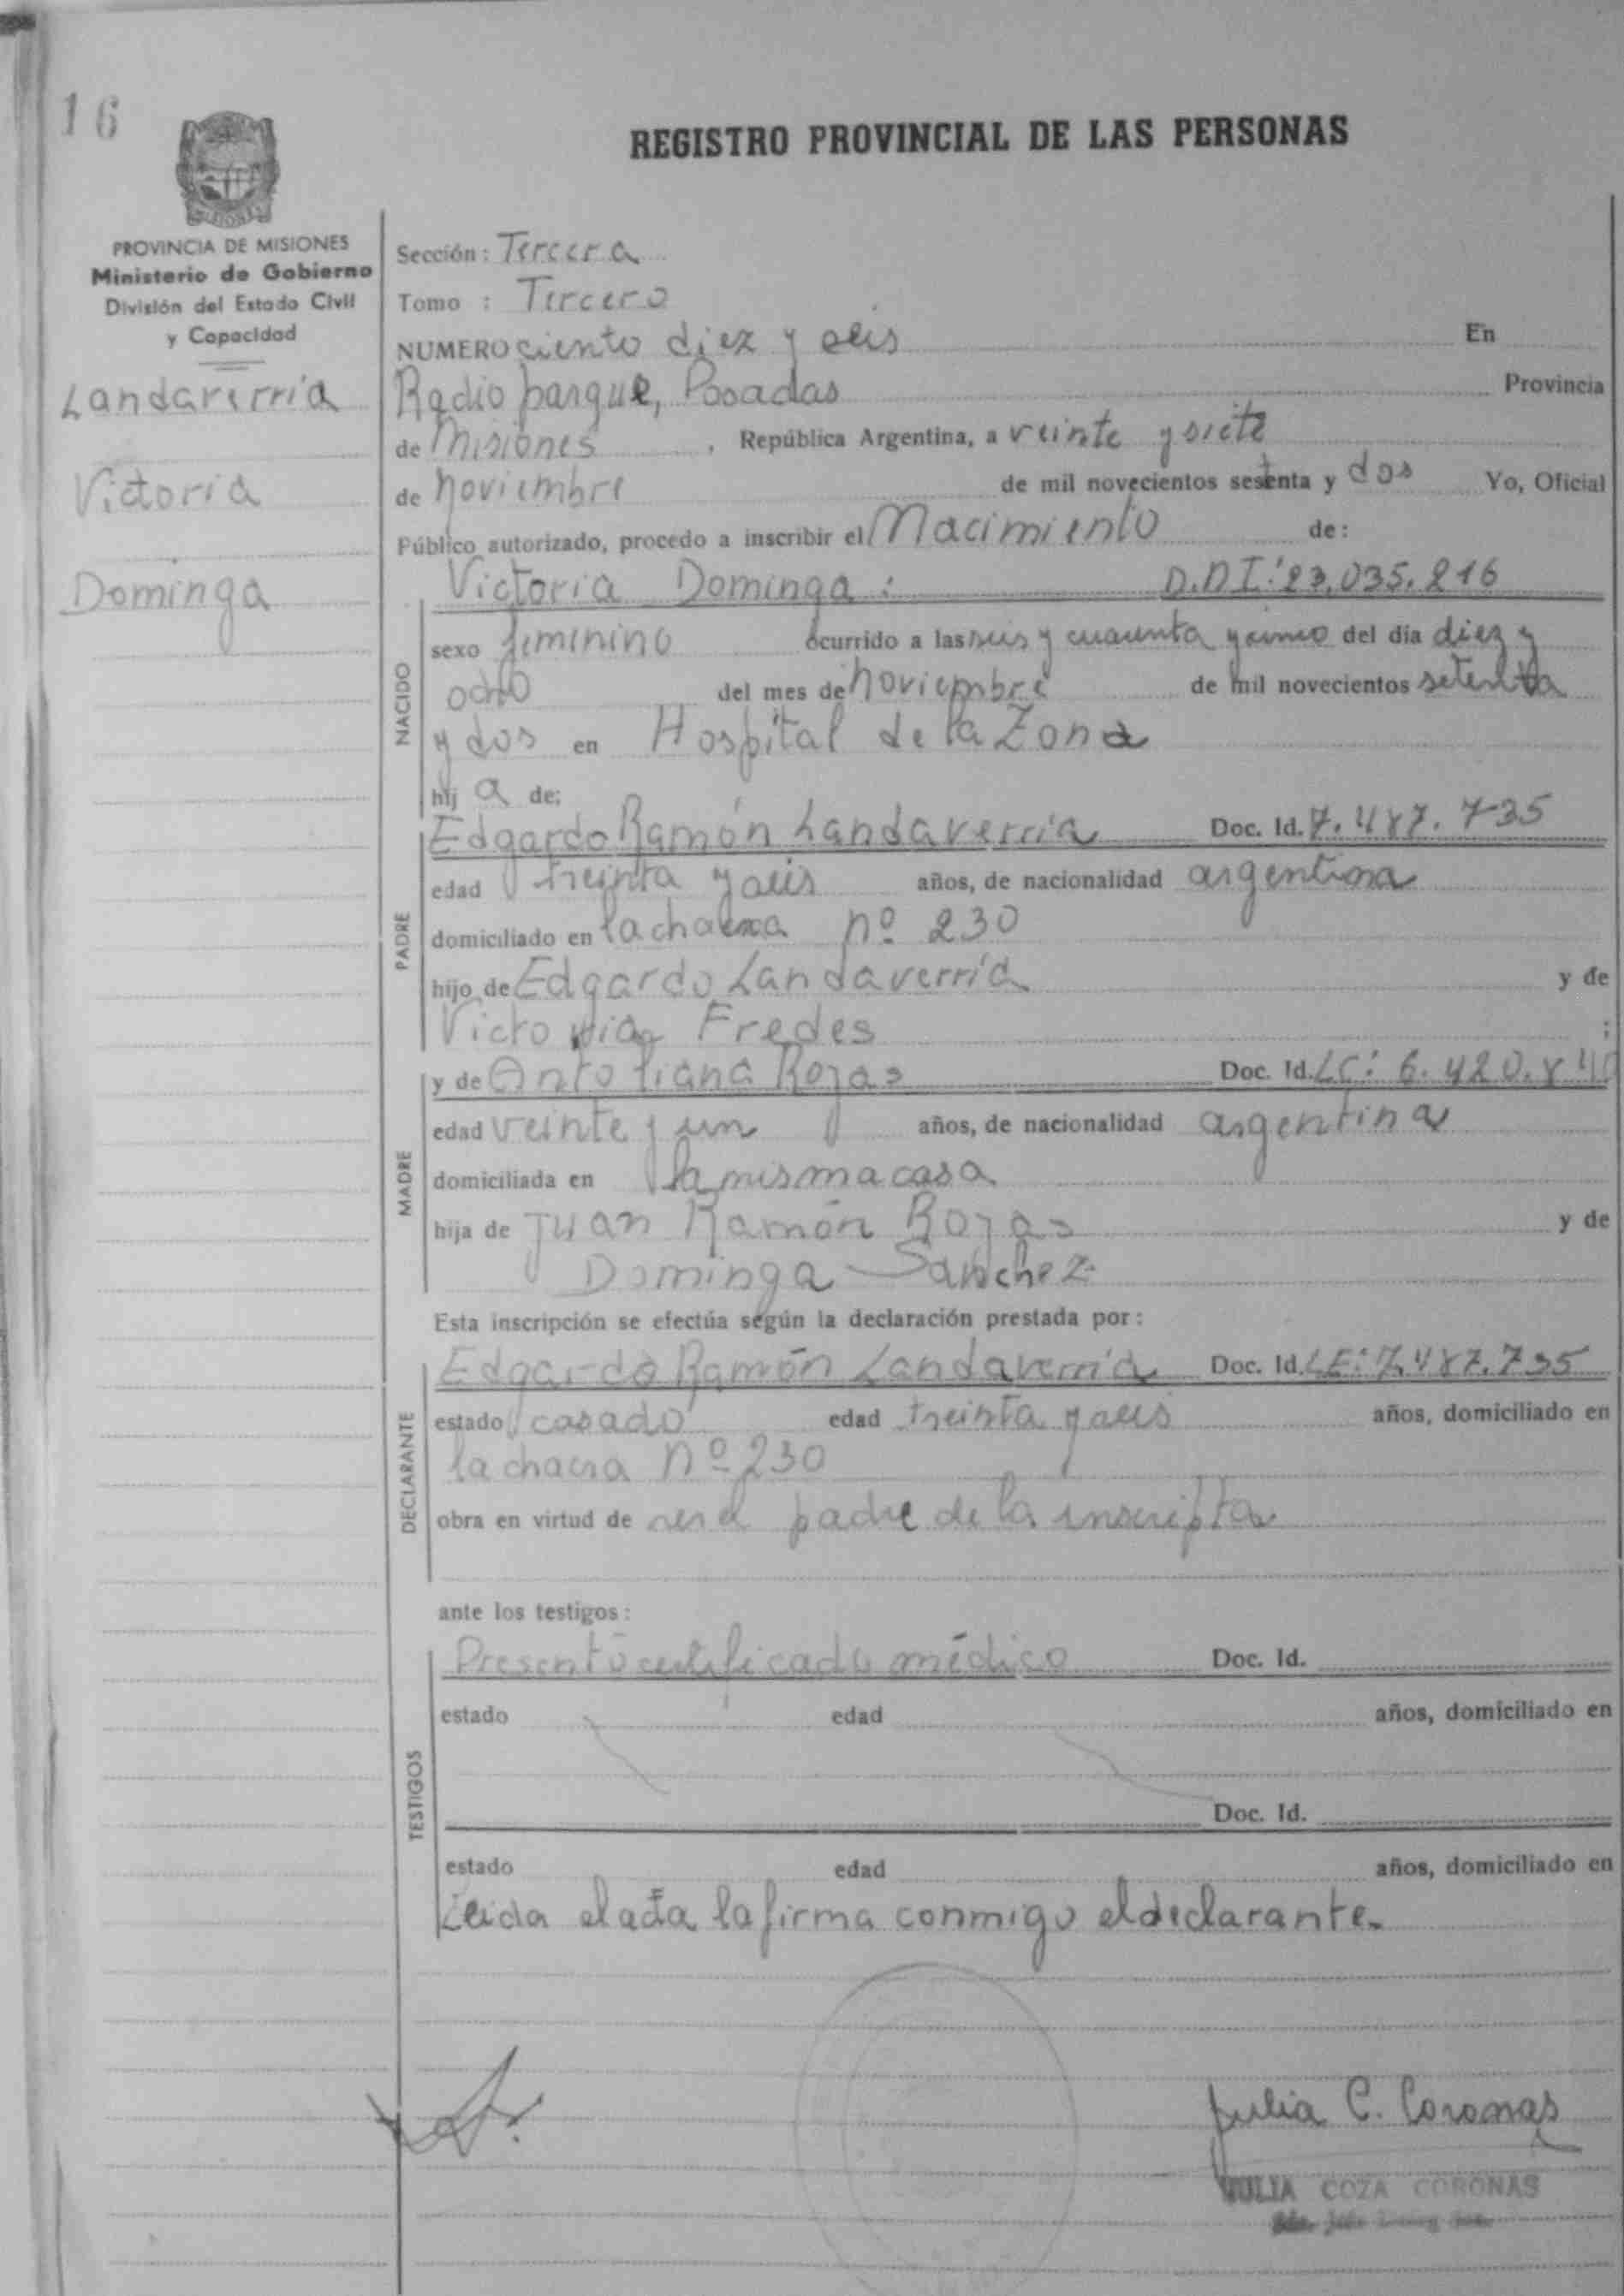 16
REGISTRO PROVINCIAL DE LAS PERSONAS
MISIONES
PROVINCIA DE MISIONES
Ministerio de Gobierno
División del Estado Civil
y Capacidad
Landaverría
Victoria
Dominga
Sección: Tercera
Tomo : Tercero
NUMERO ciento diez y seis En
Radio parque, Posadas Provincia
de Misiones, República Argentina, a veinte y siete
de noviembre de mil novecientos sesenta y dos Yo, Oficial
Público autorizado, procedo a inscribir el Nacimiento de:
Victoria Dominga : D.D I: 23.035.216
NACIDO
sexo femenino ocurrido a las seis y cuarenta y cinco del día diez y
ocho del mes de noviembre de mil novecientos setenta
y dos en Hospital de la Zona
hij a de:
PADRE
Edgardo Ramón Landaverría Doc. Id. 7.487.735
edad treinta y seis años, de nacionalidad argentina
domiciliado en la chacra nº 230
hijo de Edgardo Landaverría y de
Victoria Fredes ;
MADRE
y de Antoliana Rojas Doc. Id. LC: 6.420.840
edad veinte y un años, de nacionalidad argentina
domiciliada en la misma casa
hija de Juan Ramón Rojas y de
Dominga Sanchez
Esta inscripción se efectúa según la declaración prestada por:
DECLARANTE
Edgardo Ramón Landaverría Doc. Id. LE: 7.487.735
estado casado edad treinta y seis años, domiciliado en
la chacra Nº 230
obra en virtud de ser el padre de la inscripta
ante los testigos:
TESTIGOS
Presentó certificado médico Doc. Id.
estado edad años, domiciliado en
Doc. Id.
estado edad años, domiciliado en
Leida el acta la firma conmigo el declarante.
Julia C. Coronas
JULIA COZA CORONAS